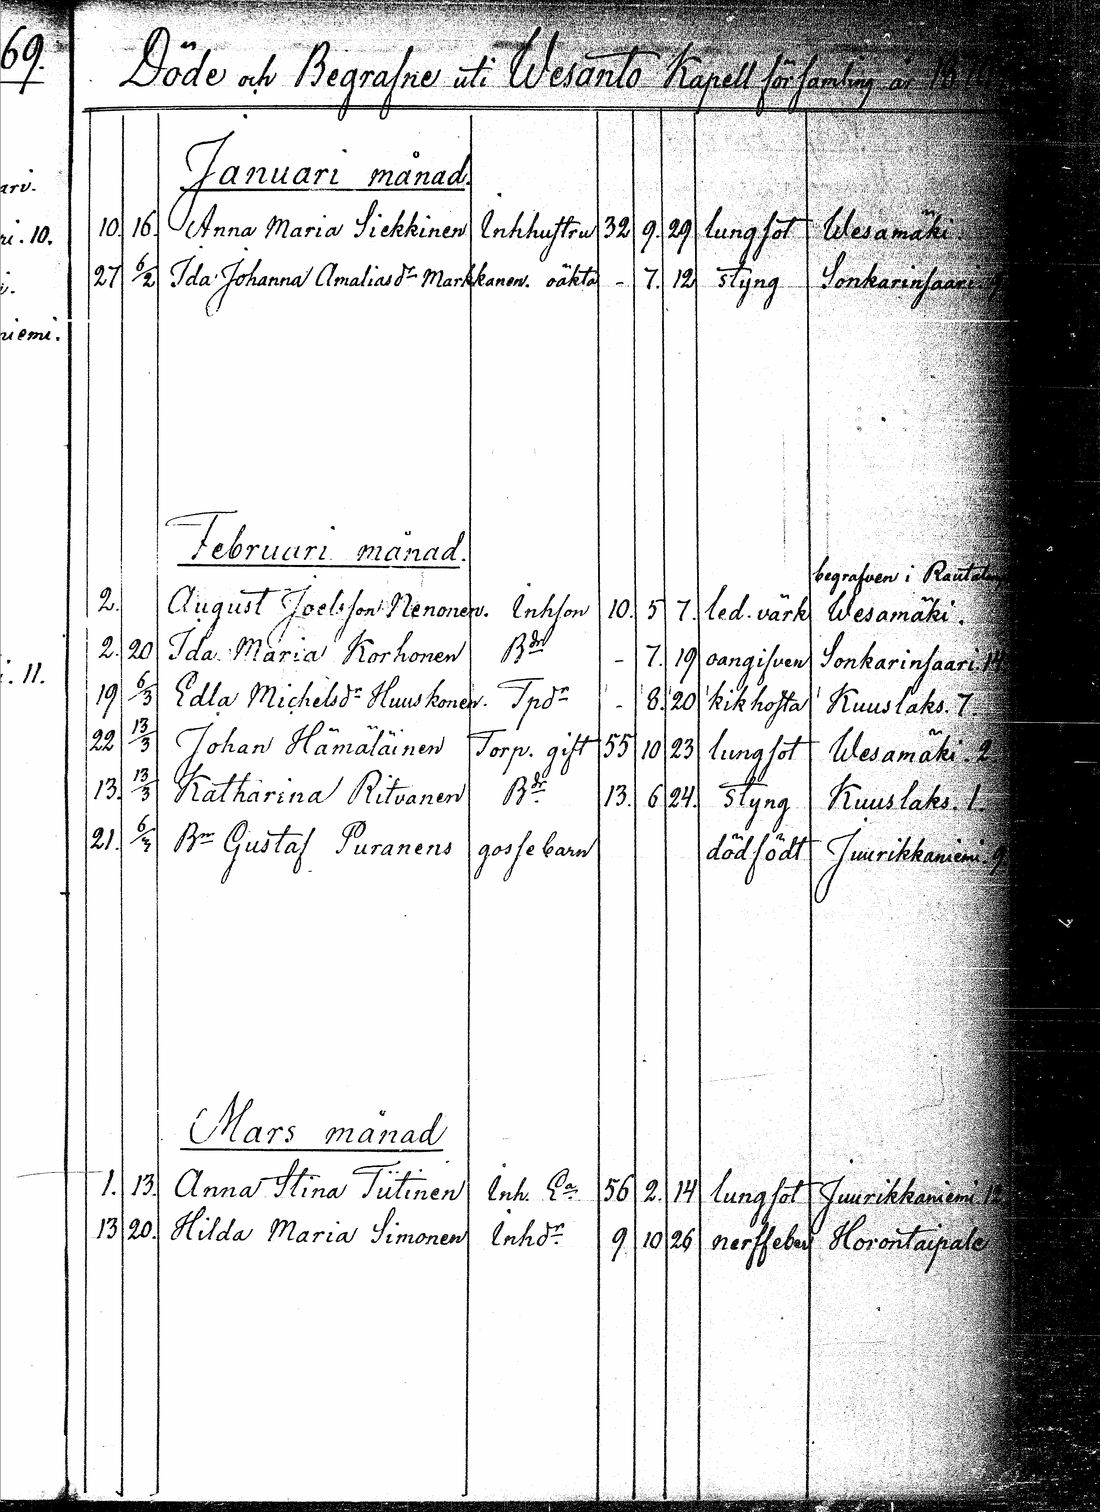 69.
Döde och Begrafne uti Wesanto Kapell församling år 18
Januari månad.
10. 16. Anna Maria Siekkinen Inhhustru 32 9. 29 lungsot Wesamäki.
27 6/2 Ida Johanna Amaliasdr Markkanen. oäkta - 7. 12 styng Sonkarinsaari. 9
Februari månad.
begrafven i
2. August Joelsson Nenonen. Inhson 10. 5 7. led. värk Wesamäki.
2. 20 Ida Maria Korhonen Bdr - 7. 19 oangifven Sonkarinsaari. 14
19 6/3 Edla Michelsdr Huuskonen. Tpdr - 8. 20 kikhosta Kuuslaks. 7.
22 13/3 Johan Hämäläinen Torp. gift 55 10 23 lungsot Wesamäki. 2.
13. 13/3 Katharina Ritvanen Bdr. 13. 6 24. styng Kuuslaks. 1.
21. Bn Gustaf Puranens gossebarn dödfödt Juurikkaniemi. 9.
Mars månad
1. 13. Anna Stina Tiitinen Inh. Ea 56 2. 14 lungsot Juurikkaniemi 12
13 20. Hilda Maria Simonen Inhdr. 9 10 26 nerffeber Horontaipale
ari.
ri. 10.
i.
niemi.
i. 11.